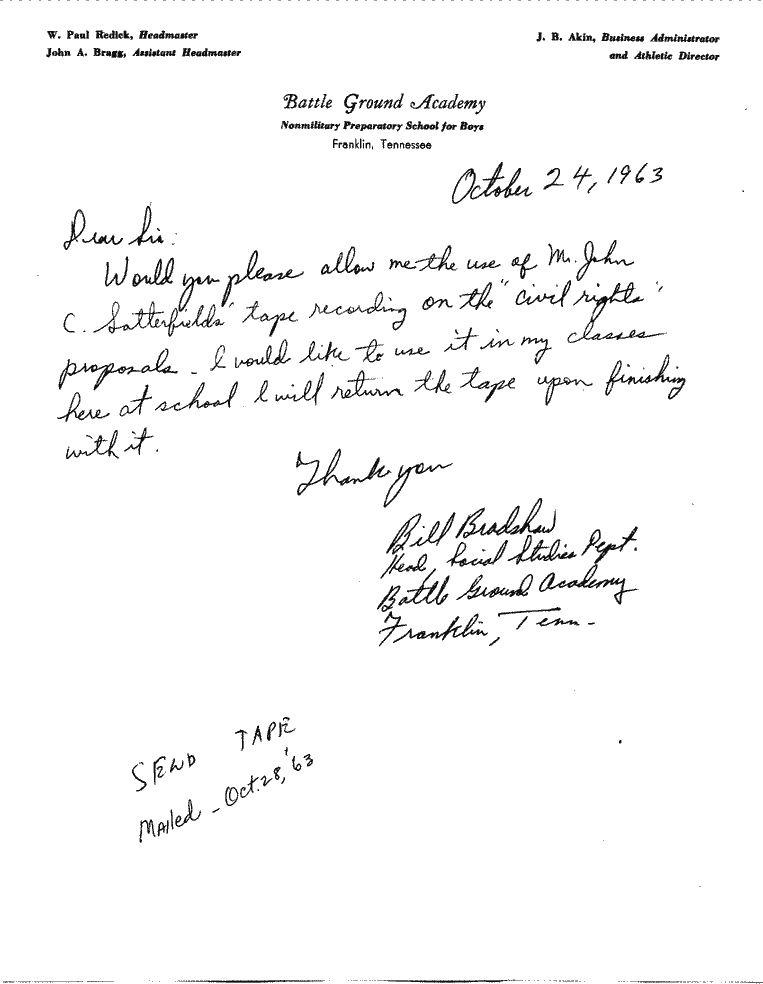 W. Paul Redick, Headmaster
John A. Bragg, Assistant Headmaster
J. B. Akin, Business Administrator
and Athletic Director
Battle Ground Academy
Nonmilitary Preparatory School for Boys
Franklin, Tennessee
October 24, 1963
Dear Sir:
Would you please allow me the use of Mr. John
C. Satterfields' tape recording on the "civil rights"
proposals. I would like to use it in my classes
here at school. I will return the tape upon finishing
with it.
Thank you
Bill Bradshaw
Head, Social Studies Dept.
Battle Ground Academy
Franklin, Tenn.
SEND TAPE
Mailed - Oct. 28, '63